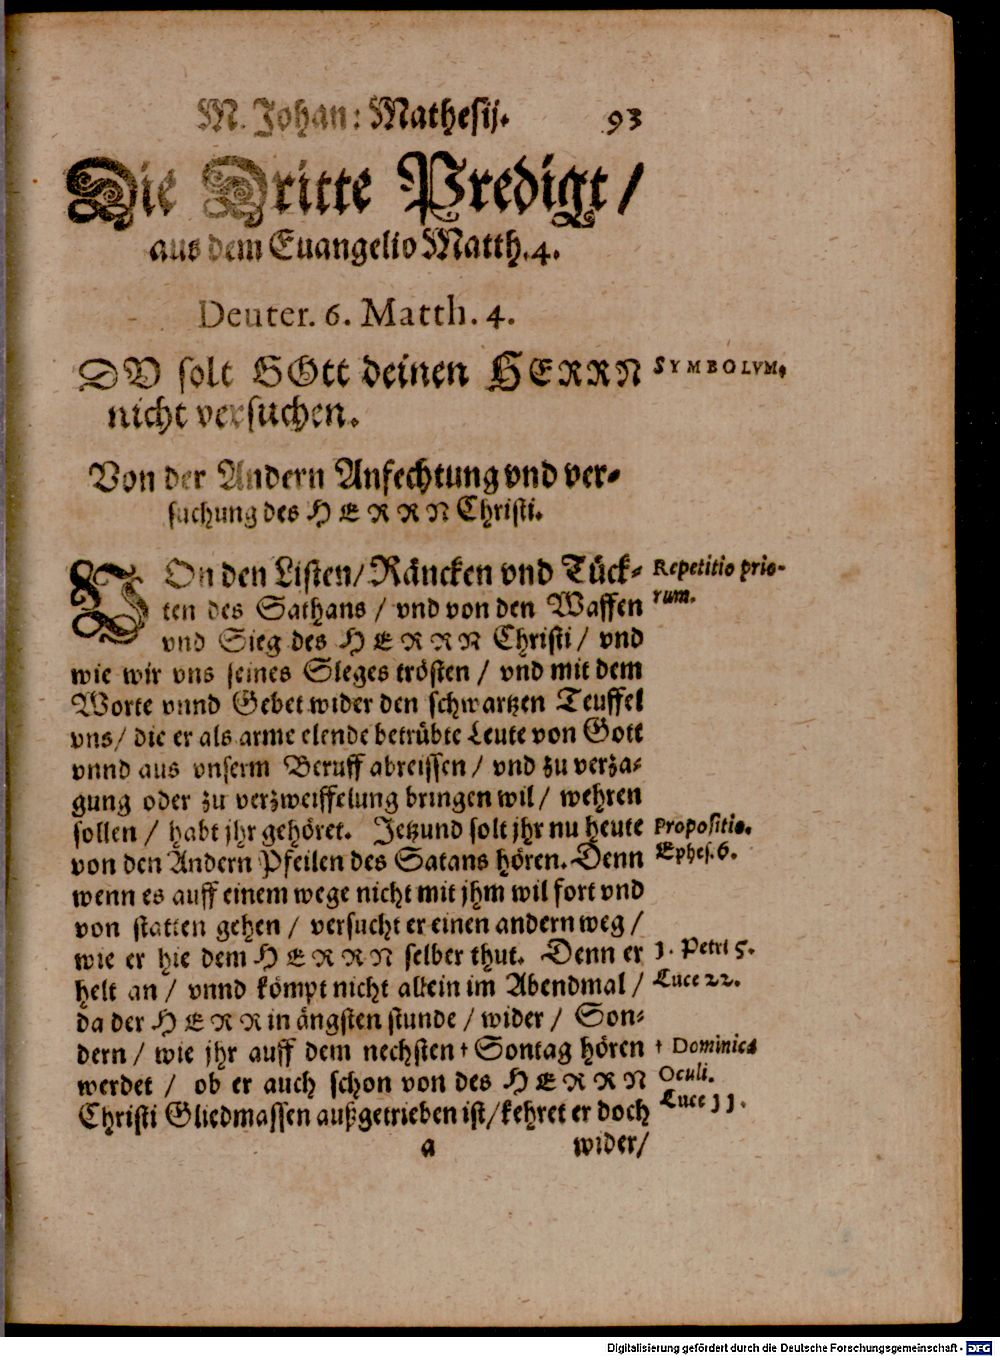 M. Johan: Mathesij. 93
Die Dritte Predigt /
aus dem Euangelio Matth. 4.
Deuter. 6. Matth. 4.
DV solt GOtt deinen HERRN
SYMBOLVM.
nicht versuchen.
Von der Andern Anfechtung vnd ver-
suchung des HERRN Christi.
VOn den Listen / Räncken vnd Tück-
Repetitio prio-
ten des Sathans / vnd von den Waffen
rum.
vnd Sieg des HERRN Christi / vnd
wie wir vns seines Sieges trösten / vnd mit dem
Worte vnnd Gebet wider den schwartzen Teuffel
vns / die er als arme elende betrübte Leute von Gott
vnnd aus vnserm Beruff abreissen / vnd zu verza-
gung oder zu verzweiffelung bringen wil / wehren
sollen / habt jhr gehöret. Jetzund solt jhr nu heute
Propositio.
von den Andern Pfeilen des Satans hören. Denn
Ephes. 6.
wenn es auff einem wege nicht mit jhm wil fort vnd
von statten gehen / versucht er einen andern weg /
wie er hie dem HERRN selber thut. Denn er
1. Petri 5.
helt an / vnnd kömpt nicht allein im Abendmal /
Luce 22.
da der HERR in ängsten stunde / wider / Son-
dern / wie jhr auff dem nechsten † Sontag hören
† Dominica
werdet / ob er auch schon von des HERRN
Oculi.
Christi Gliedmassen außgetrieben ist / kehret er doch
Luce 11.
a wider /
Digitalisierung gefördert durch die Deutsche Forschungsgemeinschaft - DFG